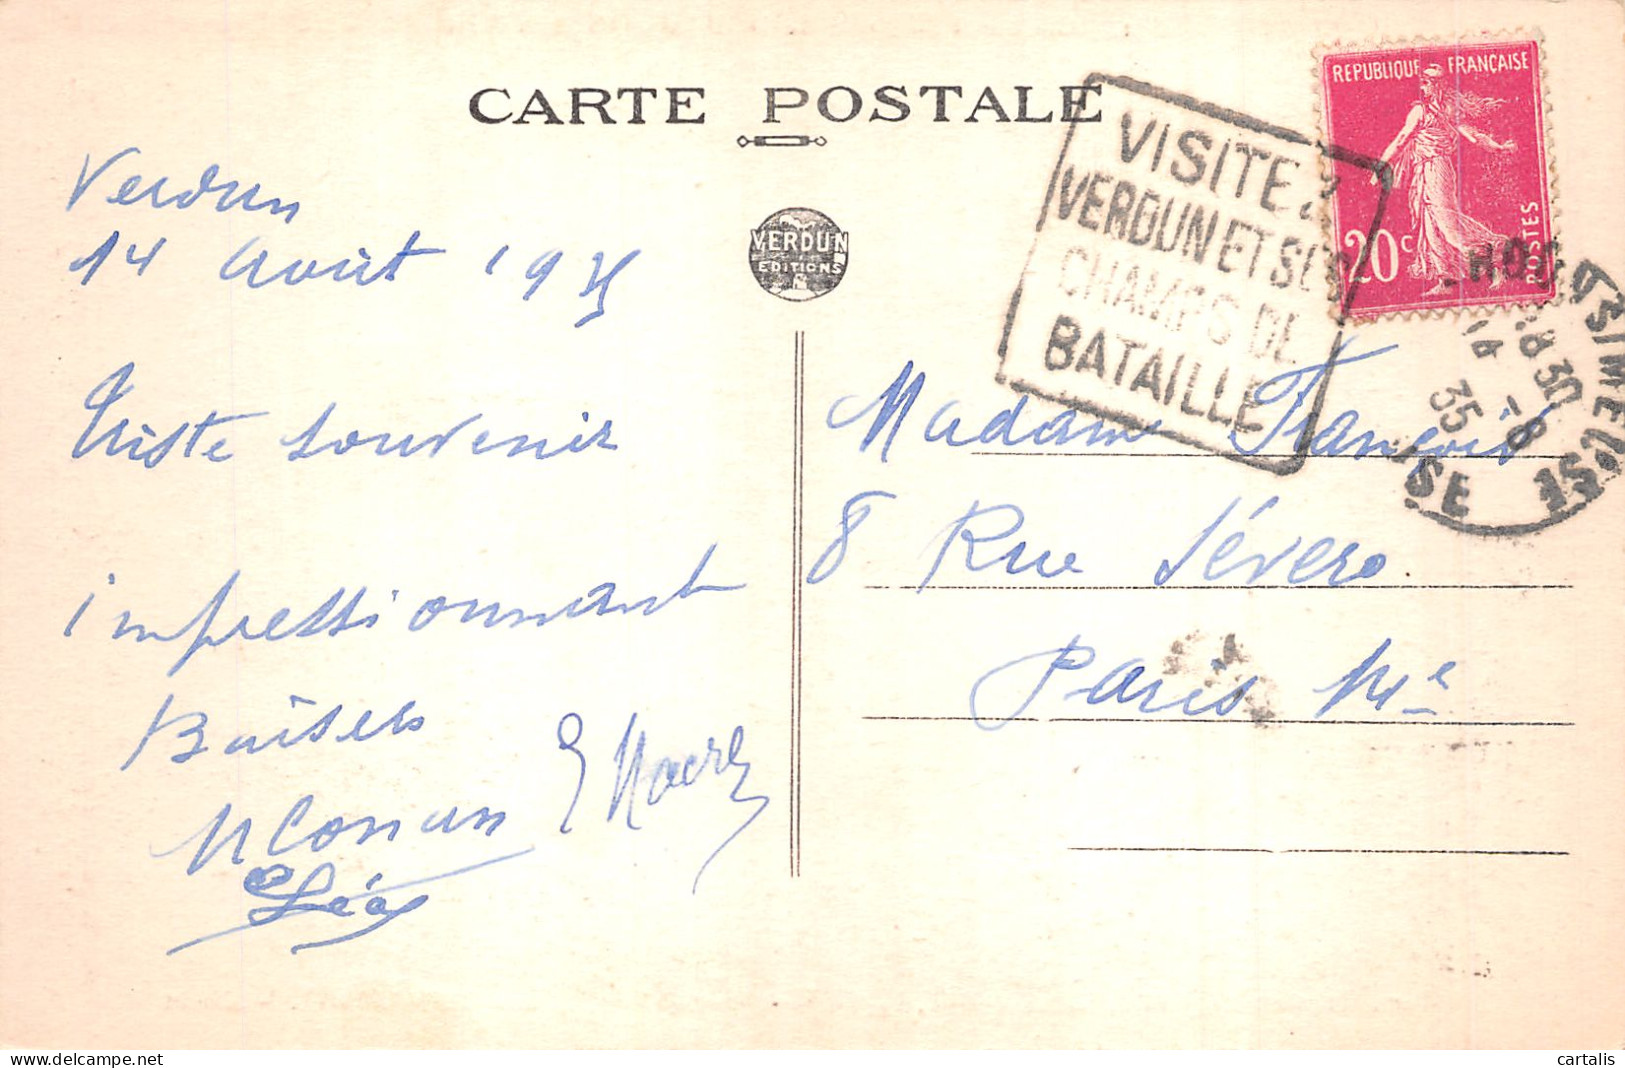 CARTE POSTALE
VERDUN
EDITIONS
Verdun
14 Août 1935
Triste souvenir
impressionnant
Baisers
Léa
VISITEZ
VERDUN ET SES
CHAMPS DE
BATAILLE
REPUBLIQUE FRANÇAISE
20c
POSTES
18 30
14 -8
35
S/MEUSE
Madame François
8 Rue Sévero
Paris
cartalis
www.delcampe.net